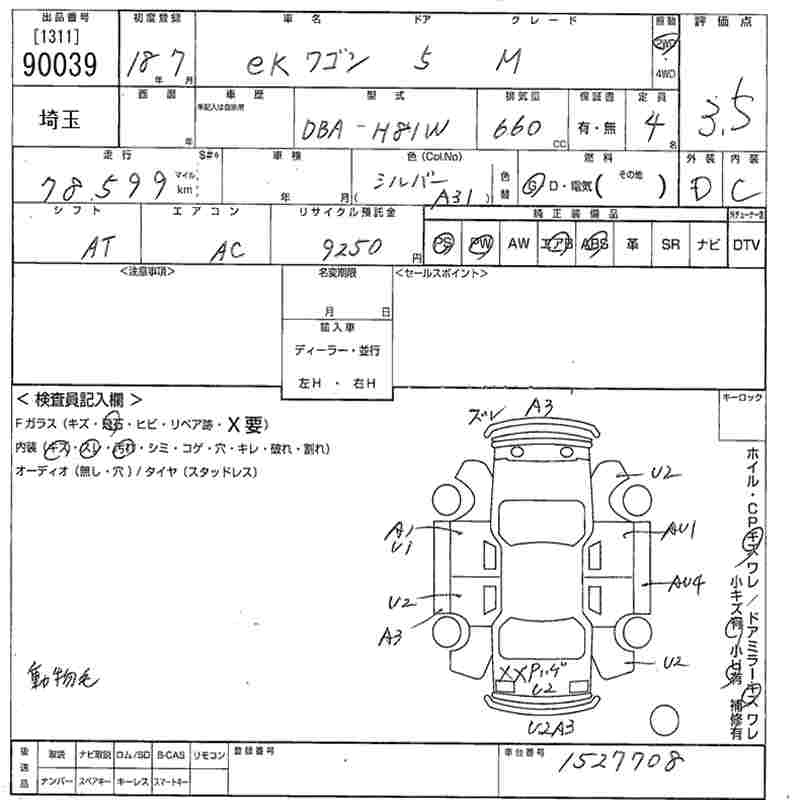 出品番号 初度登録 車名 ドア グレード 駆動 評価点
[1311]
90039 18年 7月 eKワゴン 5 M 2WD ・ 4WD 3.5
埼玉 年 車歴 未記入は自家用 型式 排気量 保証書 定員
DBA-H81W 660 CC 有・無 4名
走行 S#☆ 車検 色 (Col.No) 色替 燃料 外装 内装
78,599 マイル km 年 月 シルバー (A31) G D・電気( その他 ) D C
シフト エアコン リサイクル預託金 純正装備品
AT AC 9250円 PS PW AW エアB ABS 革 SR ナビ DTV
<注意事項> 名変期限 <セールスポイント>
月 日
輸入車
ディーラー・並行
左H ・ 右H
< 検査員記入欄 > キーロック
Fガラス (キズ・飛石・ヒビ・リペア跡・X要)
内装 (キズ・スレ・汚れ・シミ・コゲ・穴・キレ・破れ・割れ)
オーディオ (無し・穴) / タイヤ (スタッドレス)
ズレ A3
U2
A1 U1
AU1
U2
AU4
A3
U2
XXPパッチ
U2
U2A3
動物毛
ホイル・CPキズ ワレ / ドアミラーキズ ワレ
小キズ有 小凹有 補修有
後送品 取説 ナビ取説 ロム/SD B-CAS リモコン 登録番号 車台番号
ナンバー スペアキー キーレス スマートキー 1527708